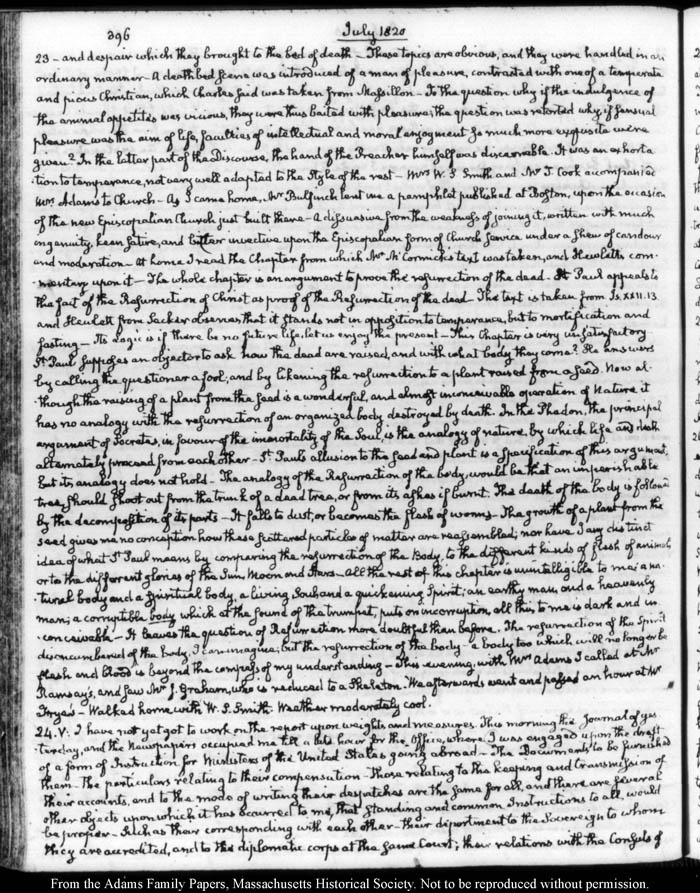 396 July 1820
23 – and despair which they brought to the bed of death – These topics are obvious, and they were handled in an
ordinary manner – A death bed scene was introduced of a man of pleasure, contrasted with one of a temperate
and pious Christian, which Charles said was taken from Massillon – To the question why if the indulgence of
the animal appetites was vicious, they were thus baited with pleasure; the question was retorted why if sensual
pleasure was the aim of life, faculties of intellectual and moral enjoyment so much more exquisite were
given? In the latter part of the Discourse, the hand of the Preacher himself was discernable. It was an exhorta
tion to temperance, not very well adapted to the style of the rest – Mrs W. S. Smith and Mr J. Cook accompanied
Mrs Adams to Church – As I came home, Mr Bulfinch lent me a pamphlet published at Boston, upon the occasion
of the new Episcopalian Church just built there – A dissuasive from the weakness of joining it, written with much
ingenuity, keen satire, and bitter invective upon the Episcopalian form of Church Service under a shew of candour
and moderation – At home I read the Chapter from which Mr McCormick's text was taken, and Hewlett's com-
mentary upon it – The whole chapter is an argument to prove the resurrection of the dead. St Paul appeals to
the fact of the Resurrection of Christ as proof of the Resurrection of the dead. The text is taken from Is. XXII. 13
and Hewlett from Secker observes that it stands not in opposition to temperance, but to mortification and
fasting – Its logic is if there be no future life, let us enjoy the present – This Chapter is very unsatisfactory
St Paul supposes an objector to ask how the dead are raised, and with what body they come? He answers
by calling the questioner a fool, and by likening the resurrection to a plant raised from a seed. Now al-
though the raising of a plant from the seed is a wonderful, and almost inconceivable operation of Nature, it
has no analogy with the resurrection of an organized body, destroyed by death. In the Phædon, the principal
argument of Socrates, in favour of the immortality of the Soul, is the analogy of nature, by which life and death
alternately proceed from each other – St Paul's allusion to the seed and plant is a specification of this argument,
but its analogy does not hold – The analogy of the Resurrection of the body, would be that an imperishable
tree, should shoot out from the trunk of a dead tree, or from its ashes if burnt. The death of the body is followed
by the decomposition of its parts – It falls to dust, or becomes the flesh of worms – The growth of a plant from the
seed gives me no conception how these scattered particles of matter are reassembled; nor have I any distinct
idea of what St Paul means by comparing the resurrection of the Body, to the different kinds of flesh of animals
or to the different glories of the Sun, Moon and Stars – All the rest of this chapter is unintelligible to me; a na-
tural body and a spiritual body, a living Soul and a quickening Spirit; an earthy man, and a heavenly
man; a corruptible body which at the sound of the trumpet, puts on incorruption, all this to me is dark and in
conceivable – It leaves the question of Resurrection more doubtful than before. The resurrection of the Spirit
disencumbered of the body, I can imagine; but the resurrection of the body – a body too which will no longer be
flesh and blood is beyond the compass of my understanding – This evening, with Mrs Adams I called at Mr
Ramsay's, and saw Mr J. Graham, who is reduced to a Skeleton. We afterwards went and passed an hour at Mr
Fryes – Walked home with W. S. Smith. Weather moderately cool.
24. V. I have not yet got to work on the report upon weights and measures. This morning the Journal of yes-
terday, and the Newspapers occupied me till a late hour for the Office, where I was engaged upon the draft
of a form of Instruction for Ministers of the United States going abroad – The Documents to be furnished
them – The particulars relating to their compensation – Those relating to the keeping and transmission of
their accounts, and to the mode of writing their despatches are the same for all, and there are several
other objects upon which it has occurred to me, that standing and common Instructions to all, would
be proper – Such as their corresponding with each other – their deportment to the Sovereign to whom
they are accredited, and to the diplomatic corps at the same Court; their relations with the Consuls of
From the Adams Family Papers, Massachusetts Historical Society. Not to be reproduced without permission.